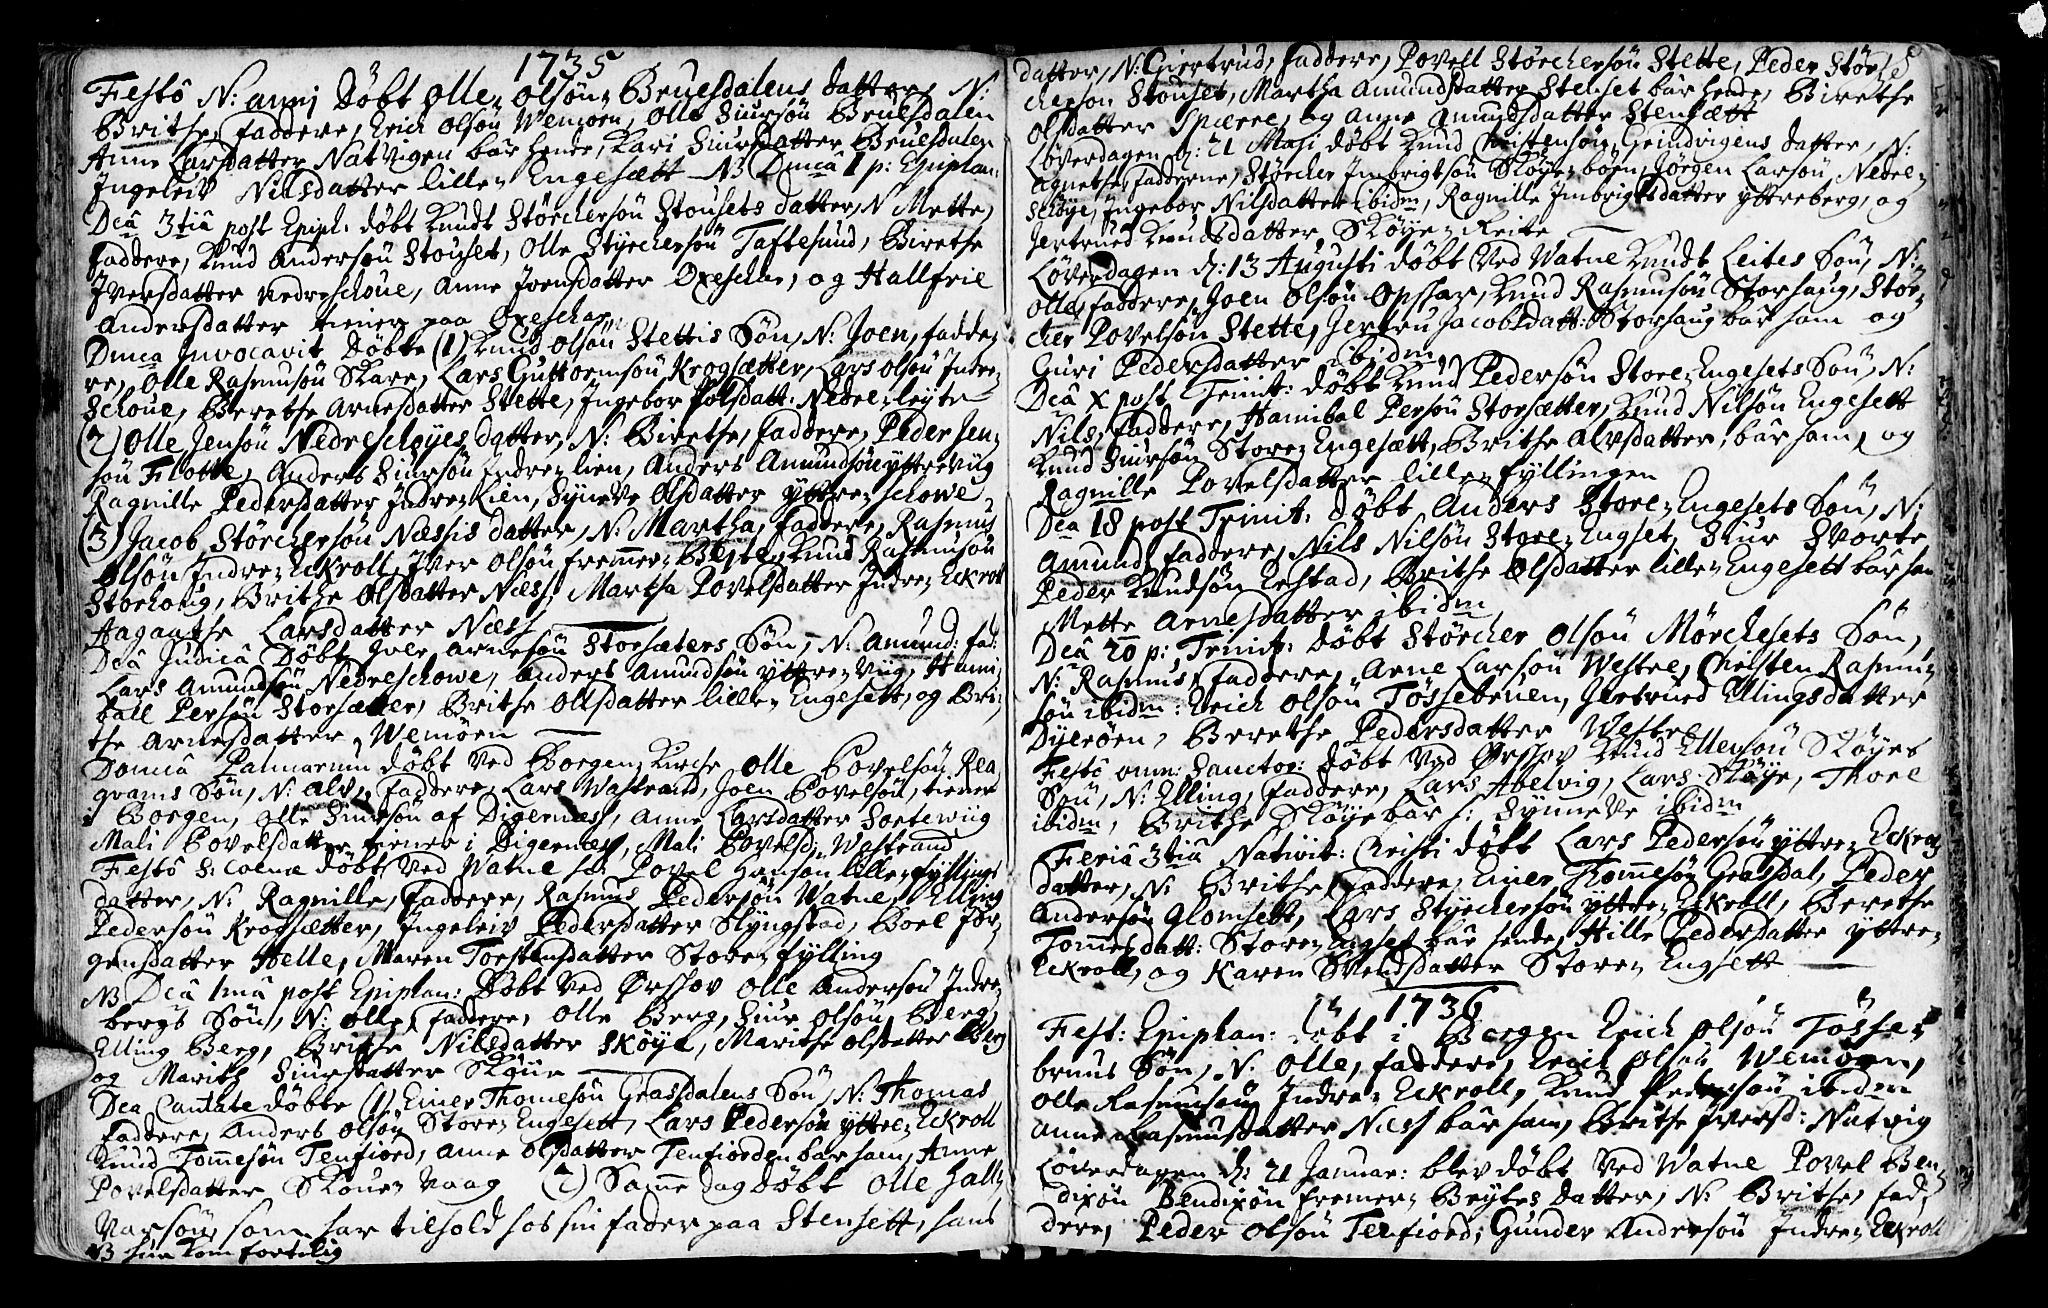 1735
Festô N: anni Døbt Olle Olsøn Bruesdalens datter, N:
Brithe, faddere, Erich Olsøn Wemøen, Olle Siursøn Bruesdalen
Anne Larsdatter Natvigen bar hende, Kari Siursdatter Bruesdalen
Ingeleiv Nilsdatter lille Engesætt NB Dnicâ 1 p: Epiphan:
Dcâ 3tiâ post Epiph: døbt Knudt Størchersøn Stousets datter, N Mette,
faddere, Knud Andersøn Stouset, Olle Styrchersøn Taftesund, Birethe
Iversdatter Nedreschoue, Anne Joensdatter Oxeschar, og Hallfrie
Andersdatter tiener paa Oxeschar
Dnica Invocavit Døbte (1) Knud Olsøn Stettis Søn, N: Joen, fadde
re, Olle Rasmusøn Skare, Lars Guttormsøn Krogsætter, Lars Olsøn Indre
Schoue, Berethe Arnesdatter Stette, Ingebor Polsdatt: Nedre leyte
(2) Olle Jensøn Nedreschøyes datter, N: Birethe, faddere, Peder Jen
søn Flotte, Anders Siursøn Indre lien, Anders Amundsøn yttreviig
Ragnille Pedersdatter Indre Lien, Syneve Olsdatter Yttre schowe
(3) Jacob Størchersøn Næssis datter, N: Martha, faddere, Rasmus
Olsøn Indre Eckroll, Iver Olsøn fremmer Bryte, Knud Rasmusøn
Storhoug, Brithe Olsdatter Næss, Martha Povelsdatter Indre Eckroll
Aagaathe Larsdatter Næss
Dcâ Judicâ Døbt Iver Arnesøn Storsæters Søn, N: Amund: fad:
Lars Amundsøn Nedreschowe, Anders Amundsøn yttre Viig, Hanni
ball Persøn Storsætter, Brithe Ollsdatter lille Engesett, og Bri
the Arnesdatter Wemøen
Domcâ Palmarum døbt ved Borgen Kirche Olle Povelsøn Rea
grams Søn, N: Alv, faddere, Lars Wastrand, Joen Povelsøn, tiener
Borgen, Olle Siursøn af Digernæss, Anne Larsdatter Sorteviig
Mali Povelsdatter tiener i Digernæss, Mali Povelsd: Wastrand
Festô S: Coenæ døbt ved Watne Povel Hansøn lille fyllings
datter, N: Ragnille, faddere, Rasmus Pedersøn Watne, Elling
Pedersøn Krogsætter, Ingeleiv Pedersdatter Slyngstad, Boel Jør
gensdatter Helle, Maren Torstensdatter Store fylling
NB Dcâ 1mâ post Epiphan: Døbt ved Ørschov Olle Andersøn Indre
bergs Søn, N: Olle, faddere, Olle Berg, Siur Olsøn Berg,
Elling Berg, Brithe Nilsdatter Skøye, Marithe Olsdatter Berg
og Marith Siursdatter Skøue
Dca Cantate døbte (1) Einer Thomesøn Grasdalens Søn, N: Thomas
faddere, Anders Olsøn Store Engesett, Lars Pedersøn yttre Eckroll
Knud Tomesøn Tenfiord, Anne Olsdatter Tenfiorden bar ham, Anne
Povelsdatter Skouevaag (2) Same dag døbt Olle Hall
varsøn, som har tilhold hos sin fader paa Stensett, hans
NB hun kom fortilig
datter, N: Giertrud, faddere, Povell Størchersøn Stette, Peder Stør
chersøn Stouset, Martha Amundsdatter Stenset bar hende, Birethe
Olsdatter Spærre, og Anne Amundsdatter Stensætt
Løverdagen d: 21 Maji døbt Knud Christensøn Grindvigens datter, N:
Agnethe, fadderne, Størcher Imbrigtsøn Skøye bøen, Jørgen Larsøn, Nedre
Schøye, Ingebor Nilsdatter ibidm, Ragnille Imbrigtsdatter yttreberg, og
Jertrued Knudsdatter Skøye Reite
Løverdagen d: 13 Augusti døbt ved Watne Knudt Leites Søn, N:
Olle, faddere, Joen Olsøn Opshar, Knud Rasmusøn Storhaug, Stør
cher Povelsøn Stette, Jertru Jacobsdatt: Storhaug bar ham og
Guri Pedersdatter ibidm
Dcâ X post Trinit: døbt Knud Pedersøn Store Engesets Søn, N:
Nils, faddere, Hanibal Persøn Storsætter, Knud Nilsøn Engesett
Knud Siursøn Store Engesætt, Brithe Alvsdatter, bar ham, og
Ragnille Povelsdatter lille fyllingen
Dca 18 post Trinit: døbt Anders Store Engesets Søn, N:
Amund, faddere, Nils Nilsøn Store Engset, Siur Svorte
Peder Knudsøn Urstad, Brithe Olsdatter lille Engesett bar ham
Mette Arnesdatter ibidm
Dcâ 20 p: Trinit: døbt Størcher Olsøn Mørchesets Søn,
N: Rasmus, faddere, Arne Larsøn Westre, Christen Rasmu
søn ibidm: Erich Olsøn Tøssebruen, Jertrued Ellingsdatter
Dyerøen, Berethe Pedersdatter Westre
Festô omn: Sanctor: døbt ved Ørschov Knud Ellensøn Skøyes
Søn, N: Elling, faddere, Lars Abelvig, Lars Skøye, Thore
ibidm, Brithe Skøye bar h: Synneve ibidm
Feriâ 3tiâ Nativit: Christi døbt Lars Pedersøn yttre Eckro
datter, N: Brithe, faddere, Einer Thomesøn Grasdal, Peder
Andersøn Glomsett, Lars Styrchersøn yttre Eckroll, Berethe
Tommesdatt: Store Engset bar hende, Hille Pedersdatter yttre
Eckroll, og Karen Svendsdatter Store Engsett
1736
Fest: Epiphan: døbt i Borgen Erich Olsøn Tøsse
bruns Søn, N: Olle, faddere, Erich Olsøn Wemøen,
Olle Rasmusøn Indre Eckroll, Knud Pedersøn ibidem
Anne Rasmusdatter Næss bar ham, Brithe Iversd: Natvig
Løverdagen d: 21 Januar: blev døbt ved Watne Povel Ben
dixøn Bendixøn fremer Brytes datter, N: Brithe, fad
dere, Peder Olsøn Tenfiord, Gunder Andersøn Indre Eckroll